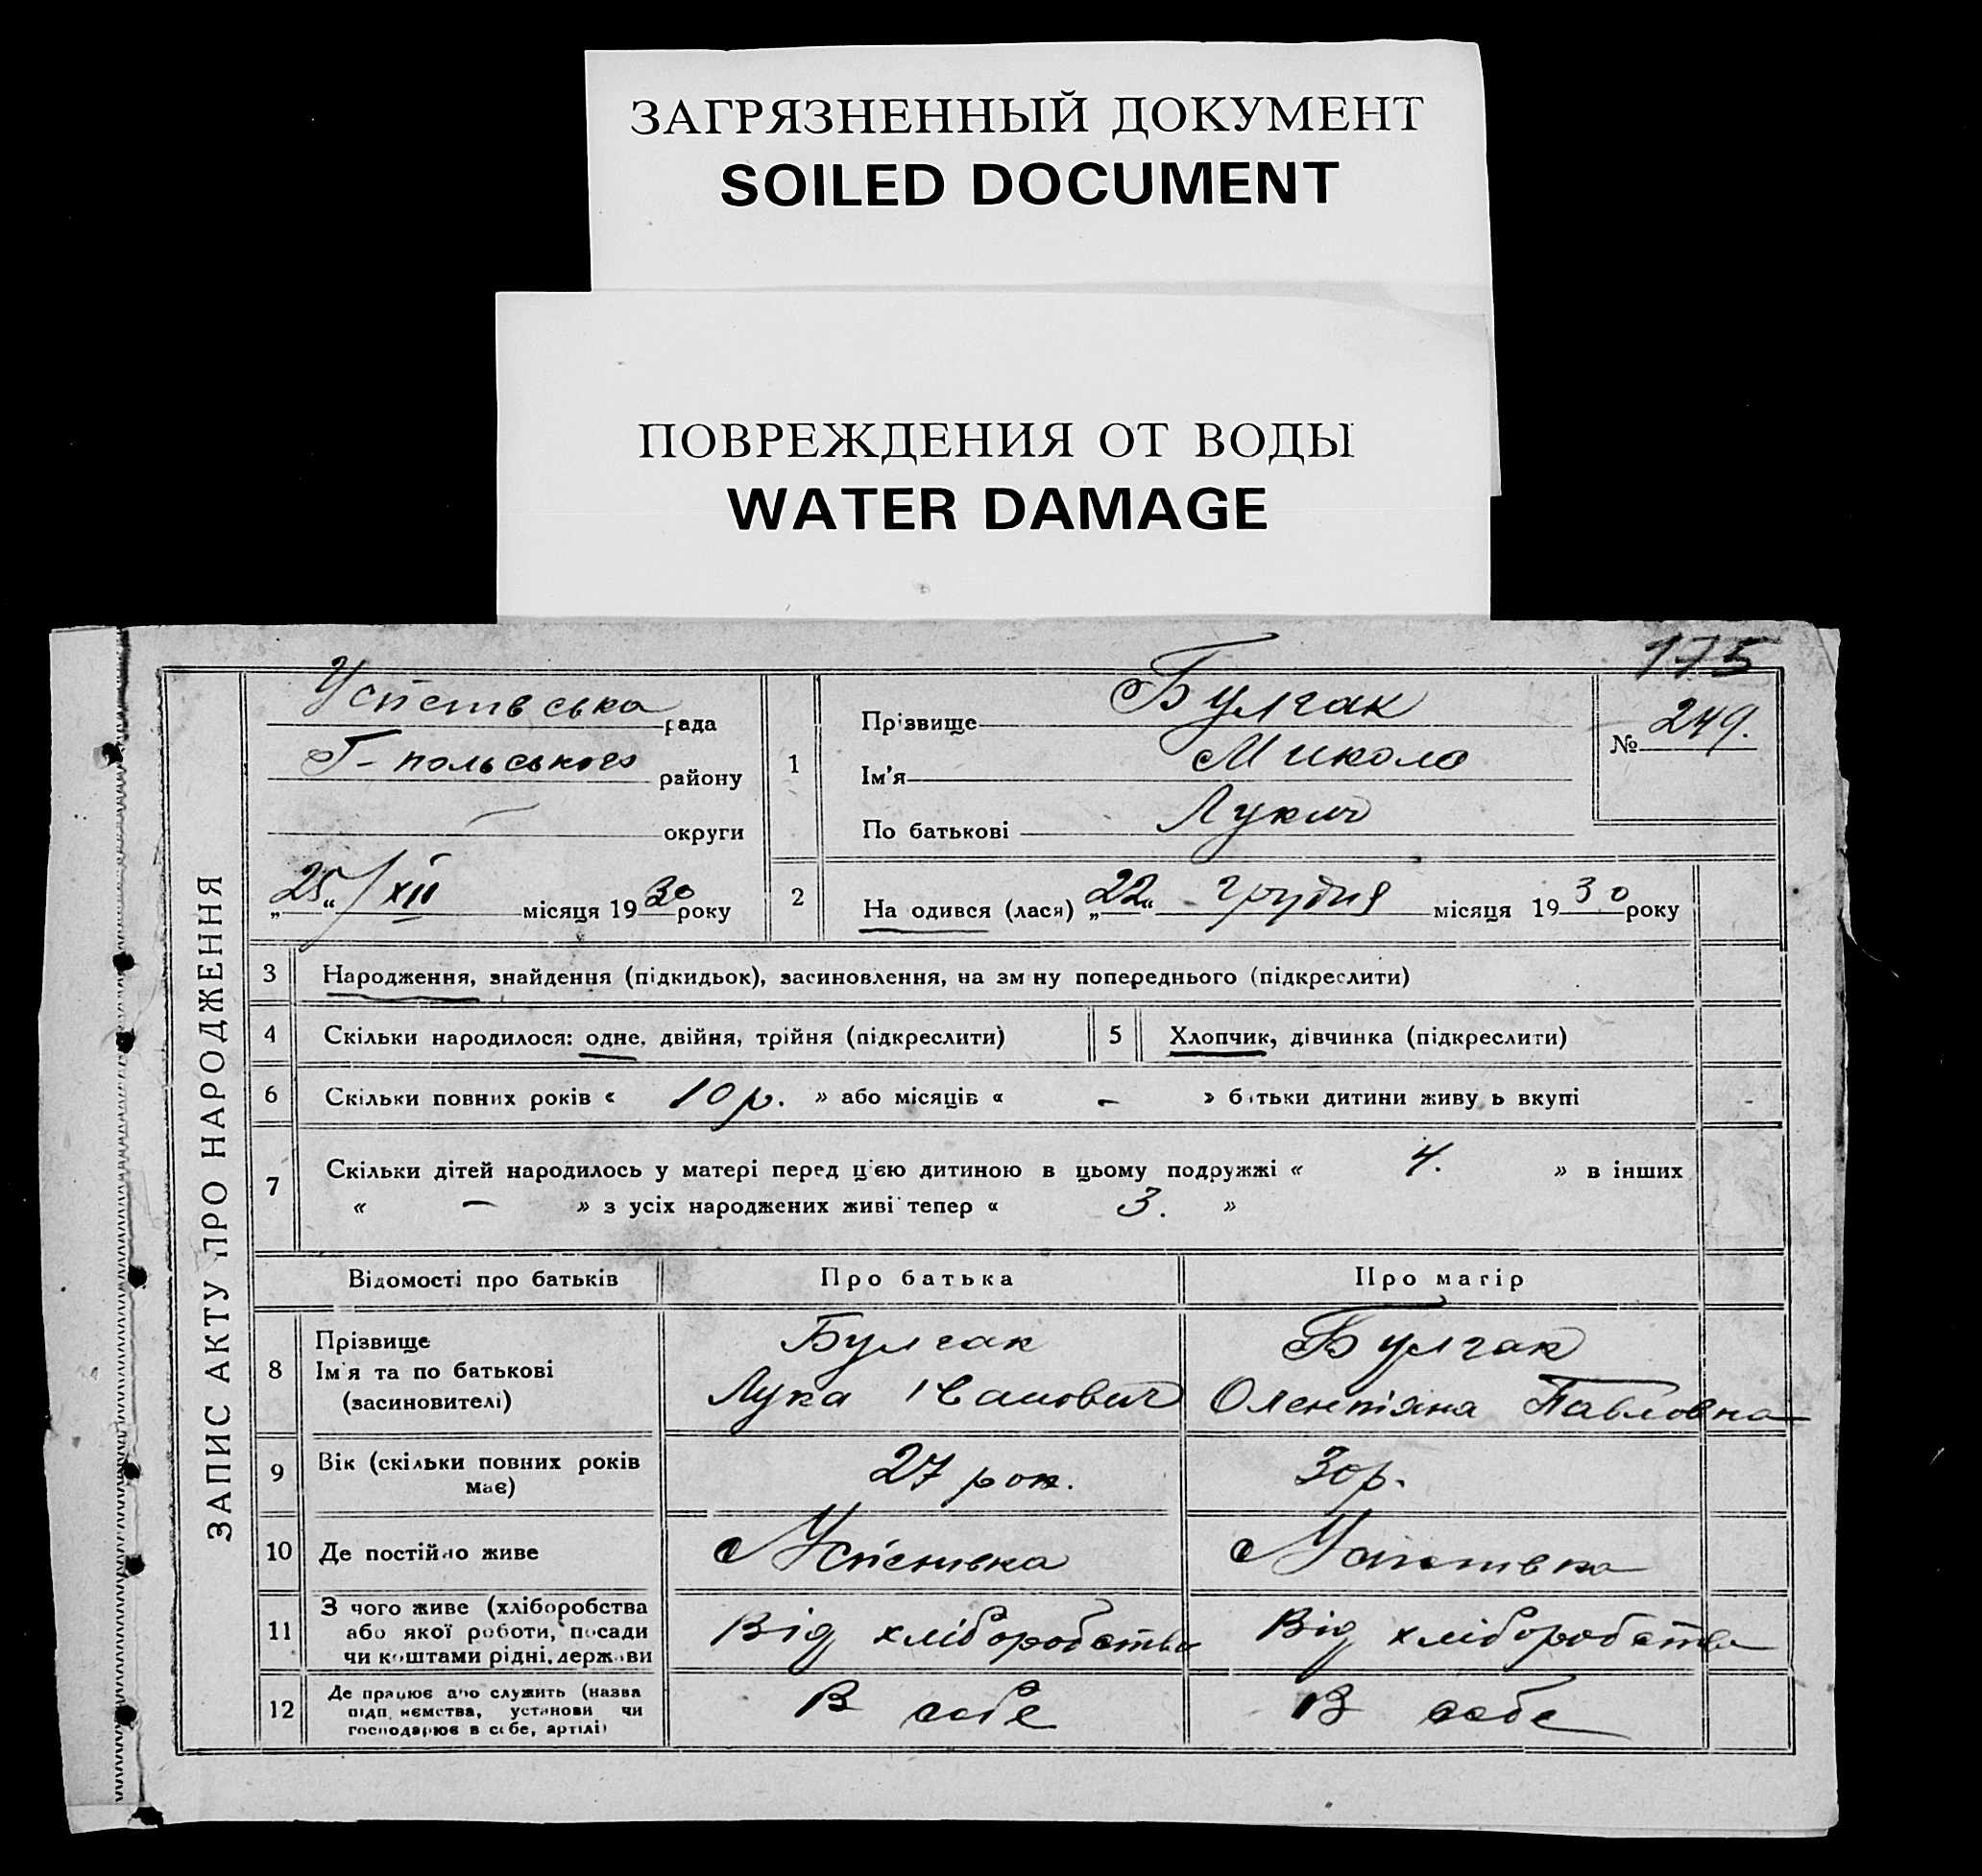 ЗАГРЯЗНЕННЫЙ ДОКУМЕНТ
SOILED DOCUMENT
ПОВРЕЖДЕНИЯ ОТ ВОДЫ
WATER DAMAGE
175
ЗАПИС АКТУ ПРО НАРОДЖЕННЯ
Успенівська рада
Г-польського району
округи
„25“/XII місяця 1930 року
1
Прізвище Булгак
Ім'я Микола
По батькові Лукич
№ 249.
2
На одився (лася) „22“ грудня місяця 1930 року
3 Народження, знайдення (підкидьок), засиновлення, на зм ну попереднього (підкреслити)
4 Скільки народилося: одне, двійня, трійня (підкреслити)
5 Хлопчик, дівчинка (підкреслити)
6 Скільки повних років « 10 р. » або місяців « - » б тьки дитини живу ь вкупі
7 Скільки дітей народилось у матері перед ц'єю дитиною в цьому подружжі « 4. » в інших
« — » з усіх народжених живі тепер « 3. »
Відомості про батьків Про батька Про матір
8 Прізвище Булгак Булгак
Ім'я та по батькові Лука Іванович Павловна
(засиновителі)
9 Вік (скільки повних років має) 27 рок. 30 р.
10 Де постійно живе Успенівка Успенівка
11 З чого живе (хліборобства
або якої роботи, посади
чи коштами рідні, держави
Від хліборобства Від хліборобства
12 Де працює або служить (назва
підп иємства, установи чи
господарює в себе, артілі)
В себе В себе